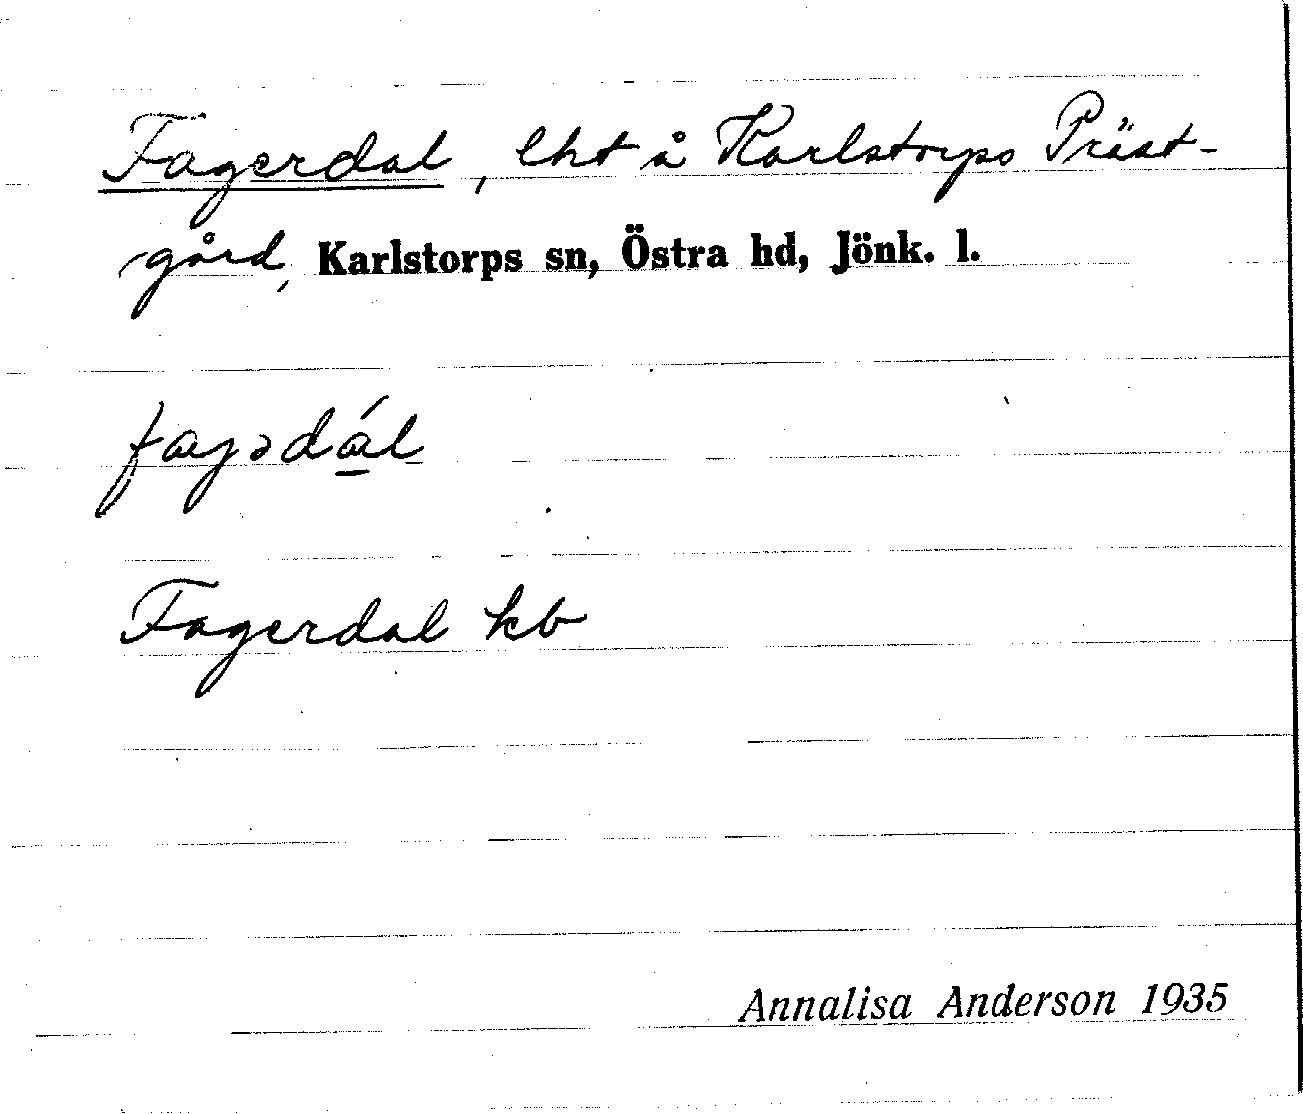 Fagerdal, lht å Karlstorps Präst-
gård, Karlstorps sn, Östra hd, Jönk. l.
fayədál
Fagerdal kb
Annalisa Anderson 1935